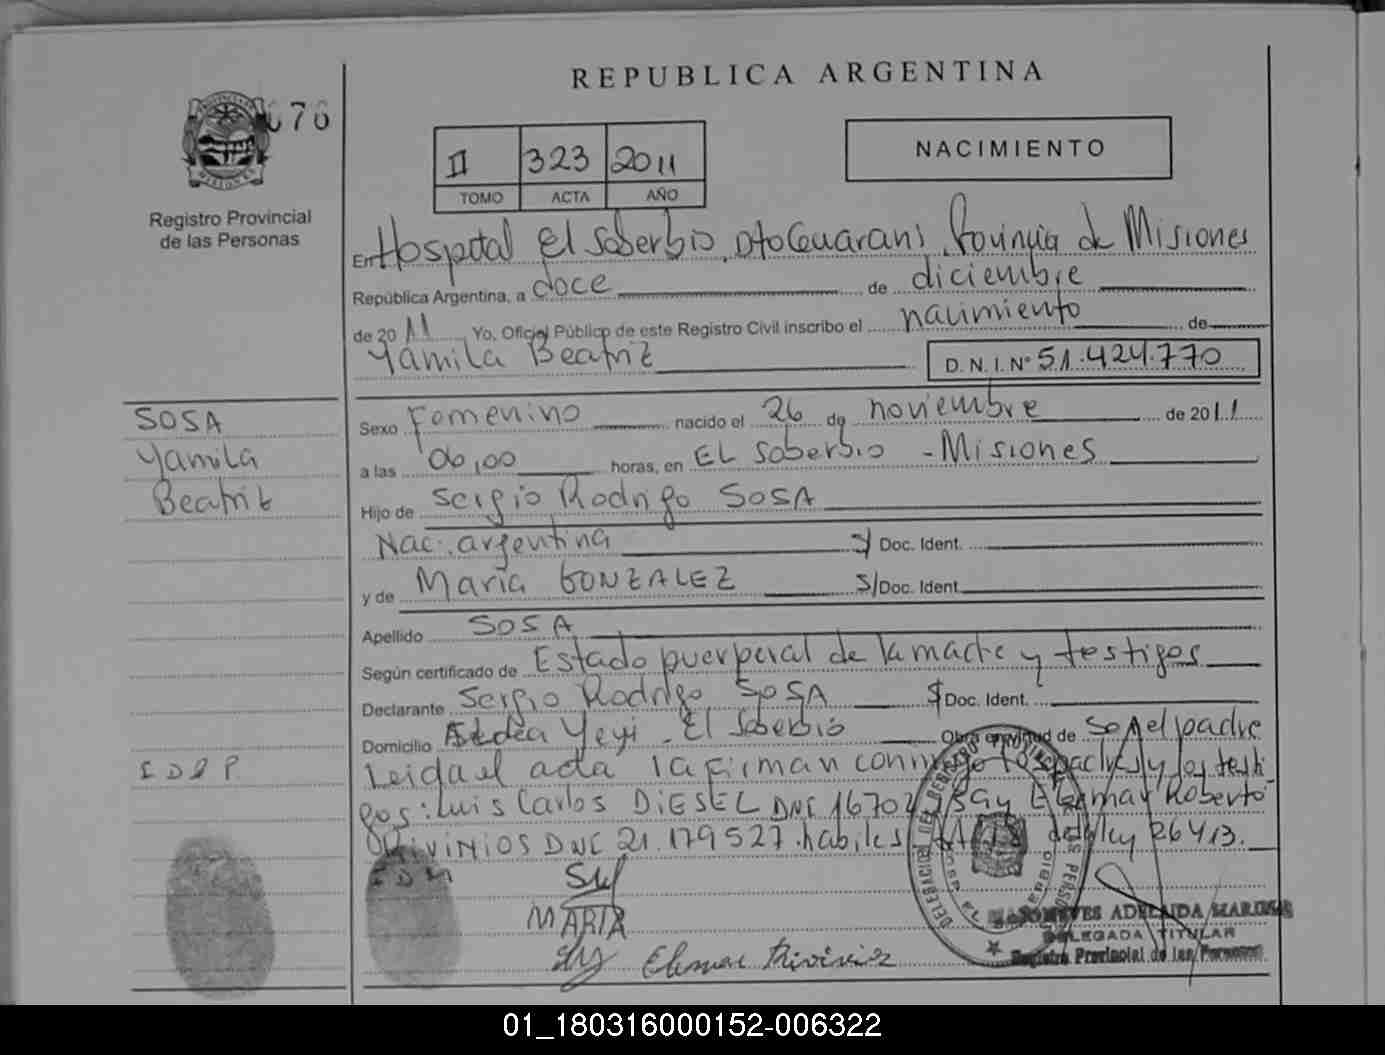 REPUBLICA ARGENTINA
676
II 323 2011
TOMO ACTA AÑO
NACIMIENTO
Registro Provincial
de las Personas
En Hospital El Soberbio, Dto Guarani, Provincia de Misiones
República Argentina, a doce de diciembre
de 2011 Yo, Oficial Público de este Registro Civil inscribo el nacimiento de
Yamila Beatriz D.N.I.Nº 51.424.770
SOSA
Yamila
Beatriz
Sexo Femenino nacido el 26 de noviembre de 2011
a las 06,00 horas, en EL Soberbio - Misiones
Hijo de Sergio Rodrigo SOSA
Nac. argentina S/ Doc. Ident.
y de Maria GONZALEZ S/ Doc. Ident.
Apellido SOSA
Según certificado de Estado puerperal de la madre y testigos
Declarante Sergio Rodrigo SOSA S/ Doc. Ident.
Domicilio Aldea Yeyi - El Soberbio Obra en virtud de ser el padre
I D D P
Leida el acta la firman conmigo los padres y los testi
gos: Luis Carlos DIESEL DNI 16702 y Elemar Roberto
DNI 21.179527 habiles ley 26413.
I D M
MARIA
Elemar
NIEVES ADELAIDA
DELEGADA TITULAR
Registro Provincial de las Personas
01_180316000152-006322